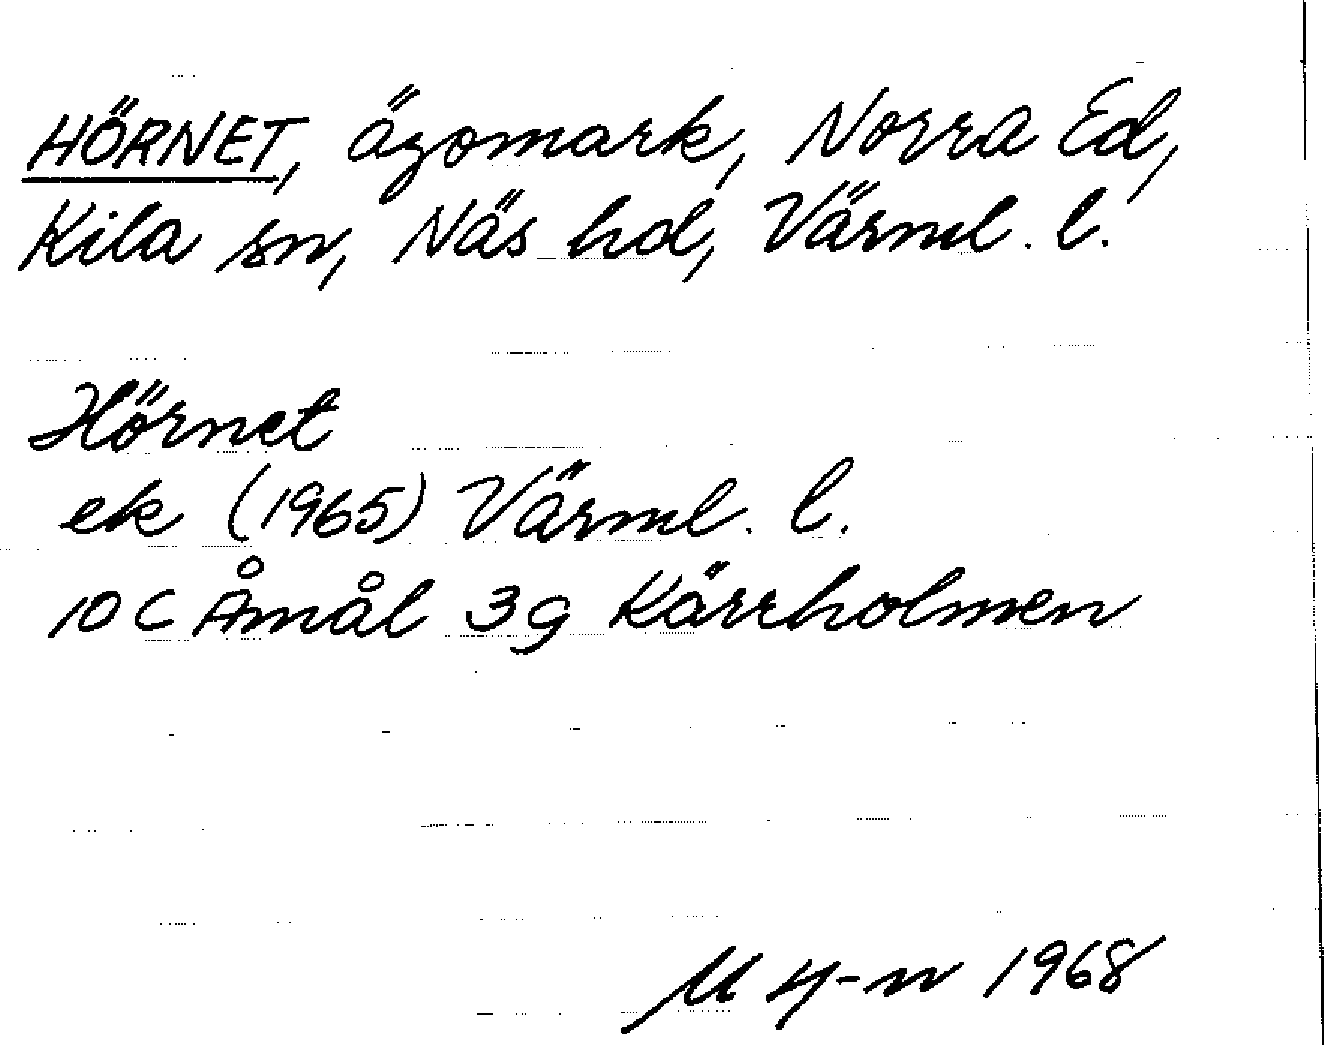 HÖRNET, ägomark, Norra Ed,
Kila sn, Näs hd, Värml. l.
Hörnet
ek (1965) Värml. l.
10 C Åmål 3 g Kärrholmen
1968